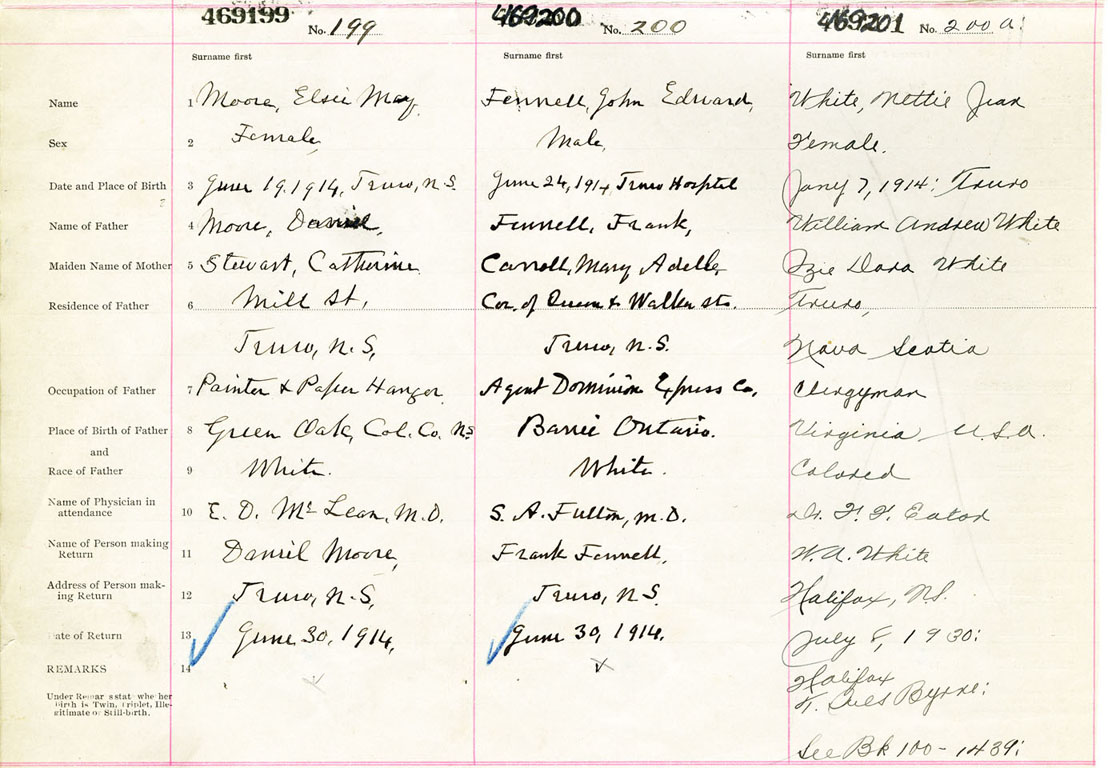 469199 No. 199
469200 No. 200
469201 No. 200 a.
Surname first Surname first Surname first
Name 1 Moore, Elsie May. Fennell, John Edward, White, Nettie Jean
Sex 2 Female, Male, Female.
Date and Place of Birth 3 June 19. 1914, Truro, N.S. June 24, 1914 Truro Hospital Jany 7, 1914: Truro
Name of Father 4 Moore, Daniel, Fennell, Frank, William Andrew White
Maiden Name of Mother 5 Stewart, Catherine Carroll, Mary Adella Izie Dora White
Residence of Father 6 Mill St, Cor. of Queen & Walker sts. Truro,
Truro, N.S, Truro, N.S. Nova Scotia
Occupation of Father 7 Painter & Paper Hanger Agent Dominion Express Co, Clergyman
Place of Birth of Father 8 Green Oak, Col. Co. N.S Barrie Ontario. Virginia U.S.A.
and
Race of Father 9 White. White. Colored
Name of Physician in
attendance 10 E. D. McLean, M.D. S. A. Fulton, M.D. Dr. F. F. Eaton
Name of Person making
Return 11 Daniel Moore, Frank Fennell, W. A. White
Address of Person mak-
ing Return 12 Truro, N.S, Truro, N.S. Halifax, N.S.
Date of Return 13 June 30, 1914, June 30, 1914. July 8, 1930:
REMARKS 14 Halifax
Under Remarks stat whether
birth is Twin, Triplet, Ille-
gitimate or Still-birth. Byrne:
See Bk 100 - 1439: